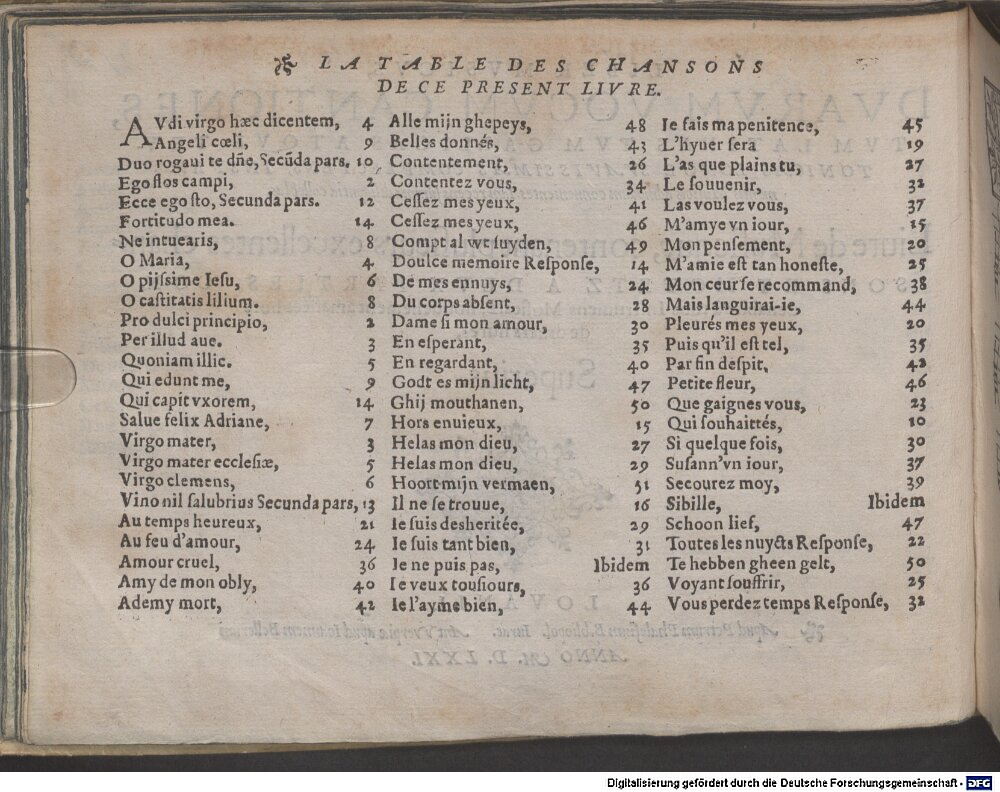 LA TABLE DES CHANSONS
DE CE PRESENT LIVRE.
AVdi virgo hæc dicentem, 4
Angeli cœli, 9
Duo rogaui te dñe, Secūda pars. 10
Ego flos campi, 2
Ecce ego sto, Secunda pars. 12
Fortitudo mea. 14
Ne intuearis, 8
O Maria, 4
O pijssime Iesu, 6
O castitatis lilium. 8
Pro dulci principio, 2
Per illud aue. 3
Quoniam illic. 5
Qui edunt me, 9
Qui capit vxorem, 14
Salue felix Adriane, 7
Virgo mater, 3
Virgo mater ecclesiæ, 5
Virgo clemens, 6
Vino nil salubrius Secunda pars, 13
Au temps heureux, 21
Au feu d'amour, 24
Amour cruel, 36
Amy de mon obly, 40
Ademy mort, 42
Alle mijn ghepeys, 48
Belles donnés, 43
Contentement, 26
Contentez vous, 34
Cessez mes yeux, 41
Cessez mes yeux, 46
Compt al wt suyden, 49
Doulce memoire Response, 14
De mes ennuys, 24
Du corps absent, 28
Dame si mon amour, 30
En esperant, 35
En regardant, 40
Godt es mijn licht, 47
Ghij mouthanen, 50
Hors enuieux, 15
Helas mon dieu, 27
Helas mon dieu, 29
Hoort mijn vermaen, 51
Il ne se trouue, 16
Ie suis desheritée, 29
Ie suis tant bien, 31
Ie ne puis pas, Ibidem
Ie veux tousiours, 36
Ie l'ayme bien, 44
Ie fais ma penitence, 45
L'hyuer sera 19
L'as que plains tu, 27
Le souuenir, 32
Las voulez vous, 37
M'amye vn iour, 15
Mon pensement, 20
M'amie est tan honeste, 25
Mon ceur se recommand, 38
Mais languirai-ie, 44
Pleurés mes yeux, 20
Puis qu'il est tel, 35
Par fin despit, 42
Petite fleur, 46
Que gaignes vous, 23
Qui souhaittés, 10
Si quelque fois, 30
Susann'vn iour, 37
Secourez moy, 39
Sibille, Ibidem
Schoon lief, 47
Toutes les nuycts Response, 22
Te hebben gheen gelt, 50
Voyant souffrir, 25
Vous perdez temps Response, 32
Digitalisierung gefördert durch die Deutsche Forschungsgemeinschaft - DFG